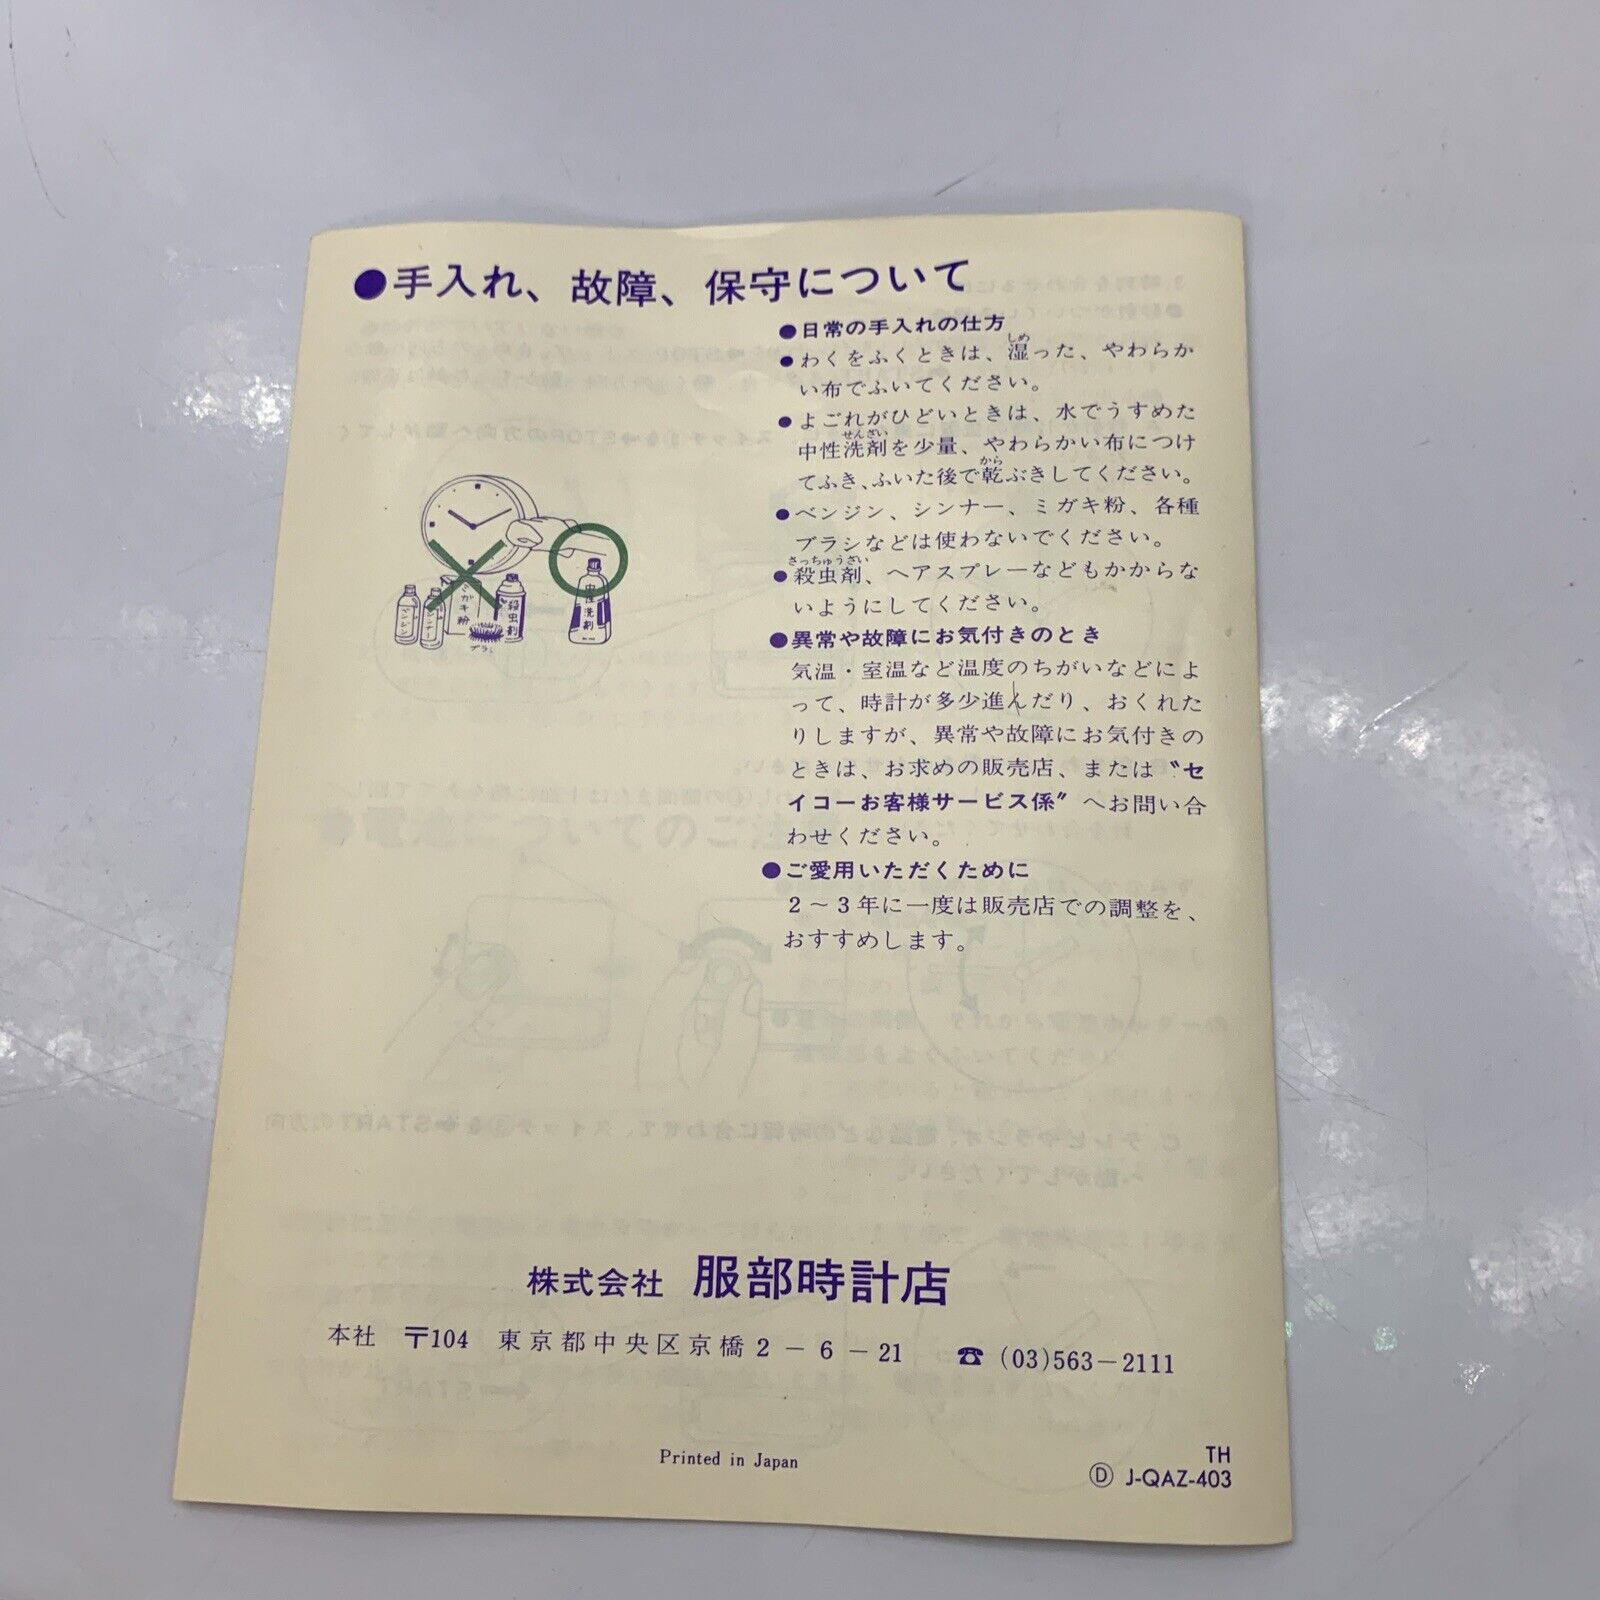 ●手入れ、故障、保守について
●日常の手入れの仕方
●わくをふくときは、湿った、やわらか
い布でふいてください。
●よごれがひどいときは、水でうすめた
中性洗剤を少量、やわらかい布につけ
てふき、ふいた後で乾ぶきしてください。
●ベンジン、シンナー、ミガキ粉、各種
ブラシなどは使わないでください。
●殺虫剤、ヘアスプレーなどもかからな
いようにしてください。
●異常や故障にお気付きのとき
気温・室温など温度のちがいなどによ
って、時計が多少進んだり、おくれた
りしますが、異常や故障にお気付きの
ときは、お求めの販売店、または〝セ
イコーお客様サービス係〟へお問い合
わせください。
●ご愛用いただくために
2〜3年に一度は販売店での調整を、
おすすめします。
ベンジン
シンナー
ミガキ粉
ブラシ
殺虫剤
中性洗剤
株式会社 服部時計店
本社 〒104 東京都中央区京橋2-6-21 ☎ (03)563-2111
Printed in Japan
TH
Ⓓ J-QAZ-403